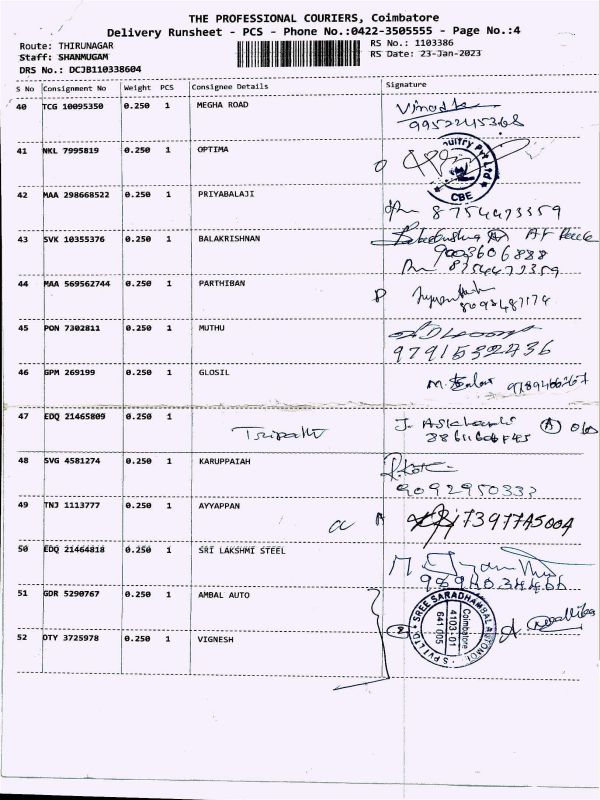 THE PROFESSIONAL COURIERS, Coimbatore
Delivery Runsheet - PCS - Phone No.:0422-3505555 - Page No.:4
Route: THIRUNAGAR
Staff: SHANMUGAM
DRS No.: DCJB110338604
RS No.: 1103386
RS Date: 23-Jan-2023
S No Consignment No Weight PCS Consignee Details Signature
40 TCG 10095350 0.250 1 MEGHA ROAD
9952245368
41 NKL 7995819 0.250 1 OPTIMA
CBE
42 MAA 298668522 0.250 1 PRIYABALAJI
8754473359
43 SVK 10355376 0.250 1 BALAKRISHNAN
9003606888
8754473359
44 MAA 569562744 0.250 1 PARTHIBAN
45 PON 7302811 0.250 1 MUTHU
9791532736
46 GPM 269199 0.250 1 GLOSIL
47 EDQ 21465809 0.250 1
48 SVG 4581274 0.250 1 KARUPPAIAH
9092950333
49 TNJ 1113777 0.250 1 AYYAPPAN
50 EDQ 21464818 0.250 1 SRI LAKSHMI STEEL
51 GDR 5290767 0.250 1 AMBAL AUTO
SREE SARADHAMBAL AUTOMO
Coimbatore
641 005
52 OTY 3725978 0.250 1 VIGNESH